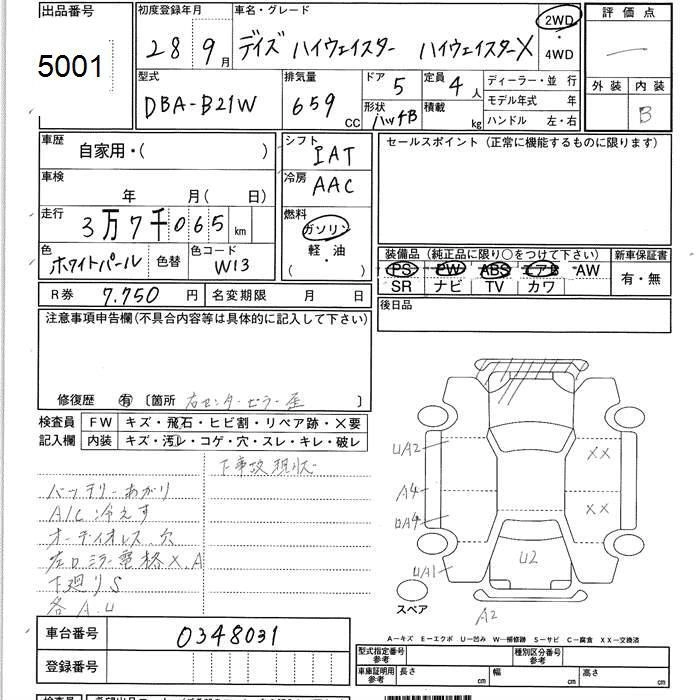 出品番号
5001
初度登録年月
28 9月
車名・グレード
デイズ ハイウェイスター ハイウェイスターX
2WD
・
4WD
評価点
外装 内装
B
型式
DBA-B21W
排気量
659 CC
ドア 5
形状 ハッチB
定員 4人
積載 kg
ディーラー・並行
モデル年式 年
ハンドル 左・右
車歴
自家用・( )
車検
年 月( 日)
走行
3万7千065 km
色
ホワイトパール
色替
色コード
W13
シフト
IAT
冷房
AAC
燃料
ガソリン
軽・油
( )
セールスポイント (正常に機能するものに限ります)
装備品 (純正品に限り○をつけて下さい)
PS PW ABS エアB AW
SR ナビ TV カワ
新車保証書
有・無
R券 7.750 円
名変期限 月 日
後日品
注意事項申告欄(不具合内容等は具体的に記入して下さい)
修復歴 有 〔箇所 右センターピラー歪 〕
検査員
記入欄
FW キズ・飛石・ヒビ割・リペア跡・×要
内装 キズ・汚レ・コゲ・穴・スレ・キレ・破レ
下事故現状
バッテリーあがり
A/C冷えず
オーディオレス.穴
左ドミラー電格×.A
下廻りS
各A.U
UA2
A4
UA4
UA1
XX
XX
U2
A2
スペア
A―キズ E―エクボ U―凹み W―補修跡 S―サビ C―腐食 XX―交換済
車台番号 0348031
登録番号
型式指定番号
参考
種別区分番号
参考
車庫証明用
参考
長さ cm 幅 cm 高さ cm